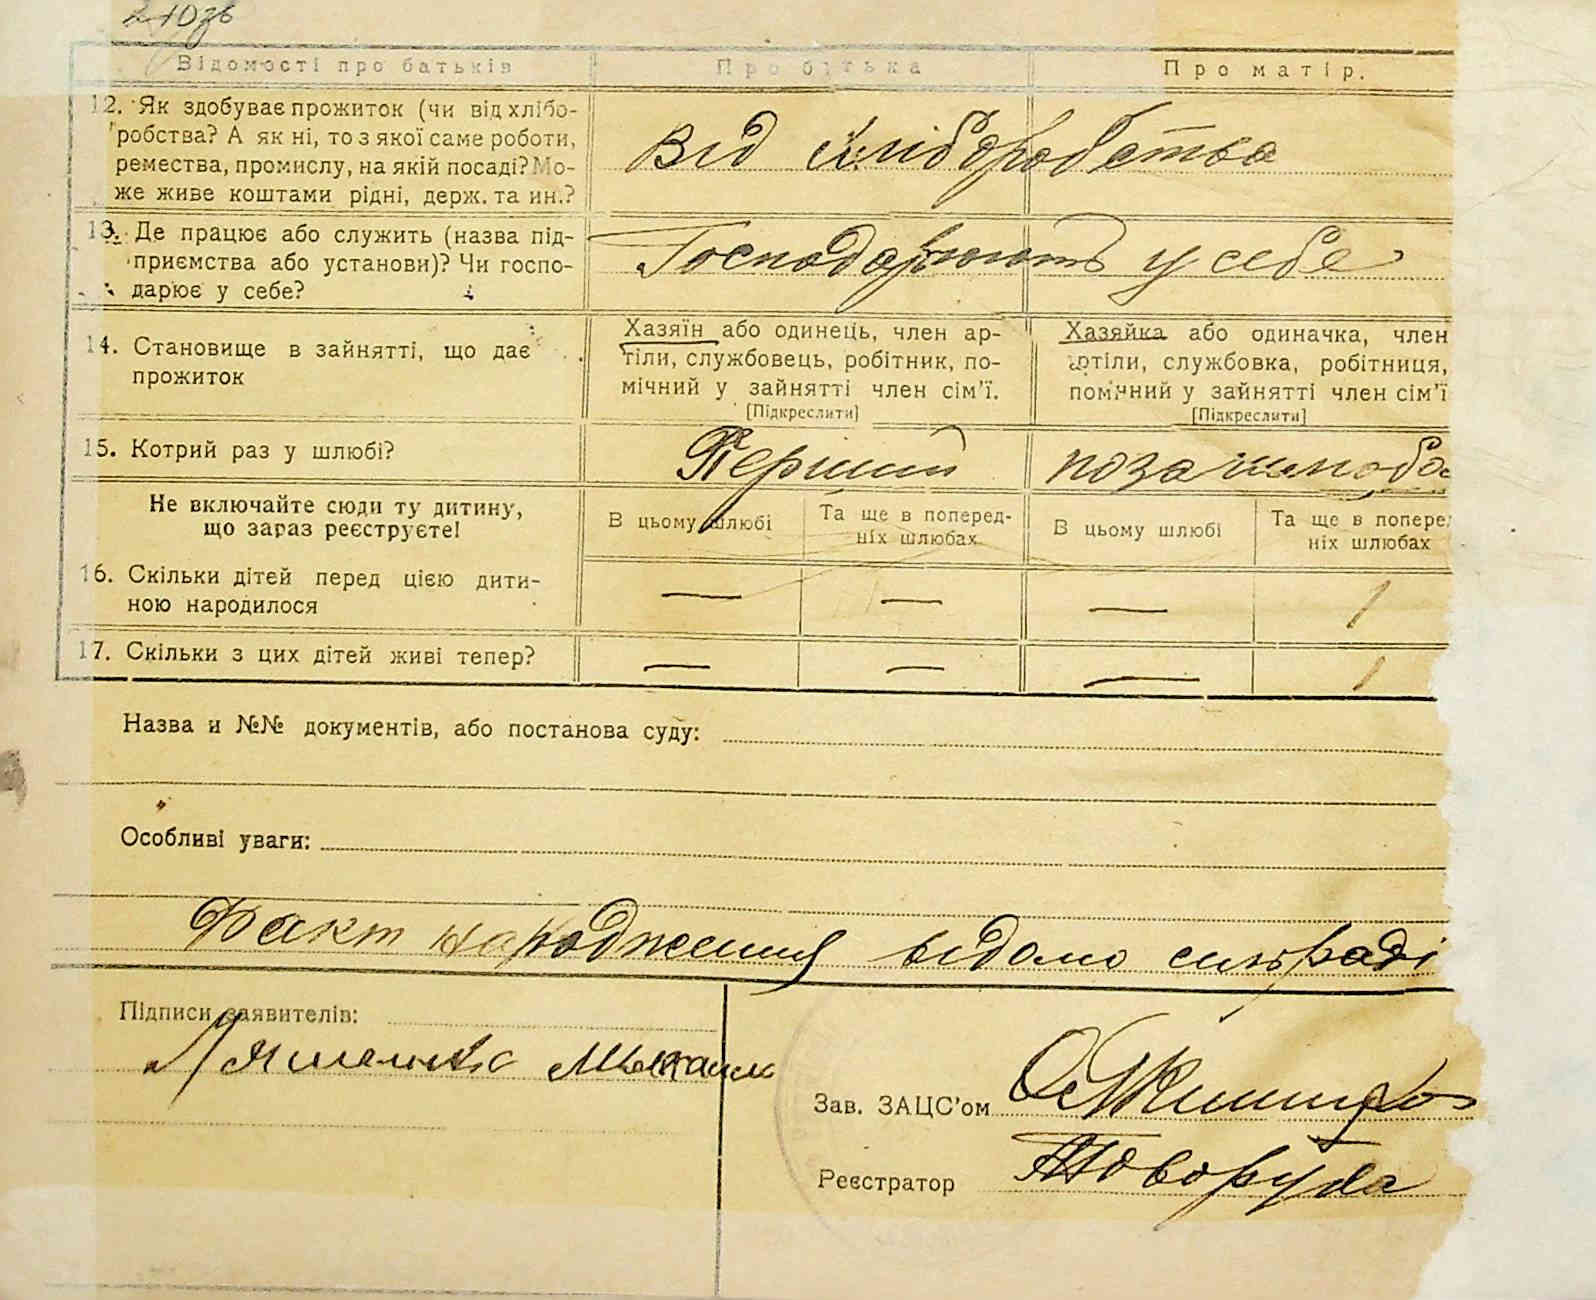 Відомості про батьків Про батька Про матір.
12. Як здобуває прожиток (чи від хлібо-
робства? А як ні, то з якої саме роботи,
ремества, промислу, на якій посаді? Мо-
же живе коштами рідні, держ. та ин.?
Від хліборобства
13. Де працює або служить (назва під-
приємства або установи)? Чи госпо-
дарює у себе?
Господарюють у себе
14. Становище в зайнятті, що дає
прожиток
Хазяїн або одинець, член ар-
тіли, службовець, робітник, по-
мічний у зайнятті член сім'ї.
[Підкреслити]
Хазяйка або одиначка, член
артіли, службовка, робітниця,
помічний у зайнятті член сім'ї
[Підкреслити]
15. Котрий раз у шлюбі?
Перший
поза шлюбо
Не включайте сюди ту дитину,
що зараз реєструєте!
В цьому шлюбі
Та ще в поперед-
ніх шлюбах
В цьому шлюбі
Та ще в попере
ніх шлюбах
16. Скільки дітей перед цією дити-
ною народилося
— — — 1
17. Скільки з цих дітей живі тепер?
— — — 1
Назва и №№ документів, або постанова суду:
Особливі уваги:
Факт народження відомо сільраді
Підписи заявителів:
Зав. ЗАЦС'ом
Реєстратор